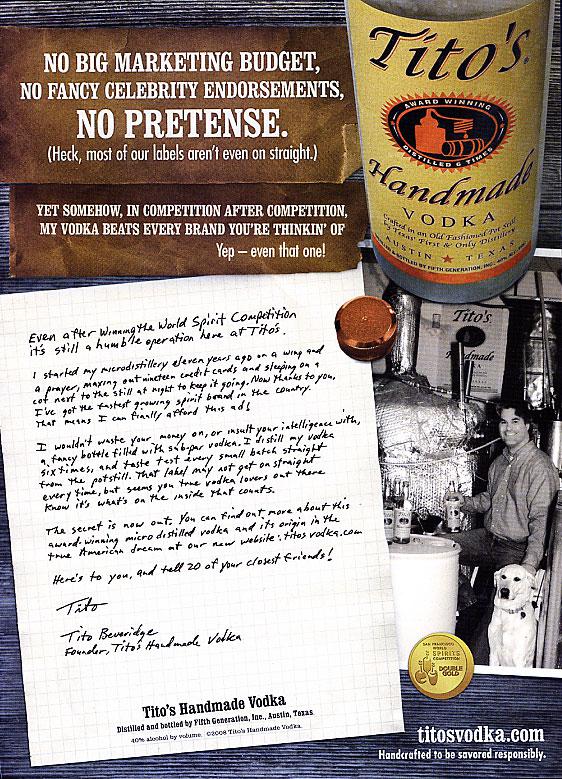 NO BIG MARKETING BUDGET,
NO FANCY CELEBRITY ENDORSEMENTS,
NO PRETENSE.
(Heck, most of our labels aren't even on straight.)
YET SOMEHOW, IN COMPETITION AFTER COMPETITION,
MY VODKA BEATS EVERY BRAND YOU'RE THINKIN' OF
Yep — even that one!
Tito's
AWARD WINNING
DISTILLED 6 TIMES
Handmade
VODKA
Crafted in an Old Fashioned Pot Still
by Texas' First & Only Distillery
AUSTIN ★ TEXAS
& BOTTLED BY FIFTH GENERATION, INC.
Even after Winning the World Spirit Competition
it's still a humble operation here at Tito's.
I started my microdistillery eleven years ago on a wing and
a prayer, maxing out nineteen credit cards and sleeping on a
cot next to the still at night to keep it going. Now thanks to you,
I've got the fastest growing spirit brand in the country.
That means I can finally afford this ad!
I wouldn't waste your money on, or insult your intelligence with,
a fancy bottle filled with sub-par vodka. I distill my vodka
six times, and taste test every small batch straight
from the potstill. That label may not get on straight
every time, but seems you true vodka lovers out there
know it's what's on the inside that counts.
The secret is now out. You can find out more about this
award-winning micro distilled vodka and its origin in the
true American dream at our new website: titosvodka.com
Here's to you, and tell 20 of your closest friends!
Tito
Tito Beveridge
Founder, Tito's Handmade Vodka
Tito's Handmade Vodka
Distilled and bottled by Fifth Generation, Inc., Austin, Texas
40% alcohol by volume. ©2008 Tito's Handmade Vodka.
Tito's
Handmade
SAN FRANCISCO
WORLD
SPIRITS
COMPETITION
DOUBLE
GOLD
titosvodka.com
Handcrafted to be savored responsibly.